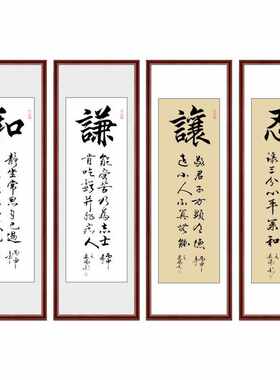 和
靜坐常思自己過
謙
能受苦乃為志士
肯吃虧并非痴人
讓
敬君子方顯有德
怕小人不算無能
忍
讓三分心平氣和